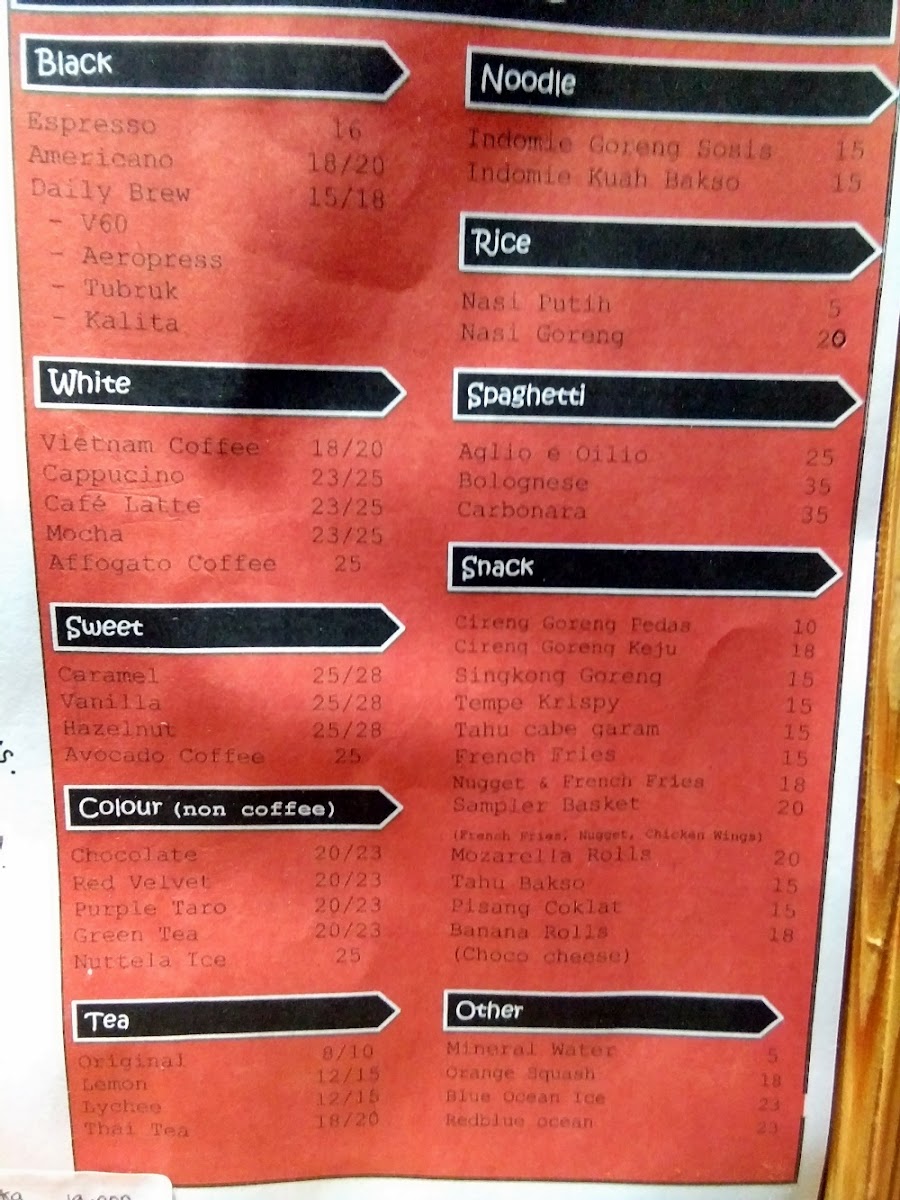 Black
Espresso 16
Americano 18/20
Daily Brew 15/18
- V60
- Aeropress
- Tubruk
- Kalita
White
Vietnam Coffee 18/20
Cappucino 23/25
Café Latte 23/25
Mocha 23/25
Affogato Coffee 25
Sweet
Caramel 25/28
Vanilla 25/28
Hazelnut 25/28
Avocado Coffee 25
Colour (non coffee)
Chocolate 20/23
Red Velvet 20/23
Purple Taro 20/23
Green Tea 20/23
Nuttela Ice 25
Tea
Original 8/10
Lemon 12/15
Lychee 12/15
Thai Tea 18/20
Noodle
Indomie Goreng Sosis 15
Indomie Kuah Bakso 15
Rice
Nasi Putih 5
Nasi Goreng 20
Spaghetti
Aglio e Oilio 25
Bolognese 35
Carbonara 35
Snack
Cireng Goreng Pedas 10
Cireng Goreng Keju 18
Singkong Goreng 15
Tempe Krispy 15
Tahu cabe garam 15
French Fries 15
Nugget & French Fries 18
Sampler Basket 20
(French Fries, Nugget, Chicken Wings)
Mozarella Rolls 20
Tahu Bakso 15
Pisang Coklat 15
Banana Rolls 18
(Choco cheese)
Other
Mineral Water 5
Orange Squash 18
Blue Ocean Ice 23
Redblue ocean 23